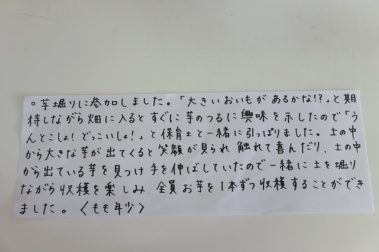 ○芋堀りに参加しました。「大きいおいもがあるかな!?」と期
待しながら畑に入るとすぐに芋のつるに興味を示したので「う
んとこしょ!どっこいしょ!」と保育士と一緒に引っぱりました。土の中
から大きな芋が出てくると笑顔が見られ、触れて喜んだり、土の中
から出ている芋を見つけ手を伸ばしていたので一緒に土を堀り
ながら収穫を楽しみ、全員お芋を1本ずつ収穫することができ
ました。〈もも年少〉